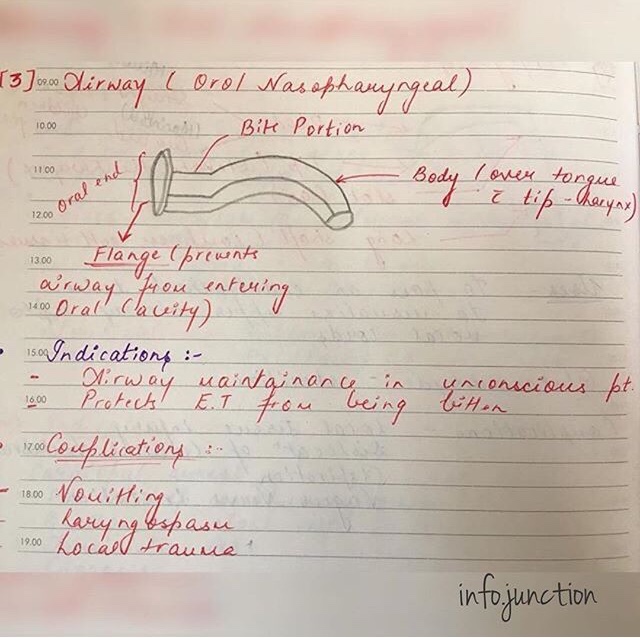 [3] 09.00 Airway ( Oral Nasopharyngeal)
10.00
Bite Portion
11.00
Oral end
Body (over tongue
c̄ tip - Pharynx)
12.00
Flange (prevents
13.00
airway from entering
14.00 Oral Cavity)
15.00 Indications :-
- Airway maintainance in unconscious pt.
16.00 - Protects E.T from being bitten
17.00 Complications :-
18.00 - Vomitting
Laryngospasm
19.00 Local trauma
info.junction